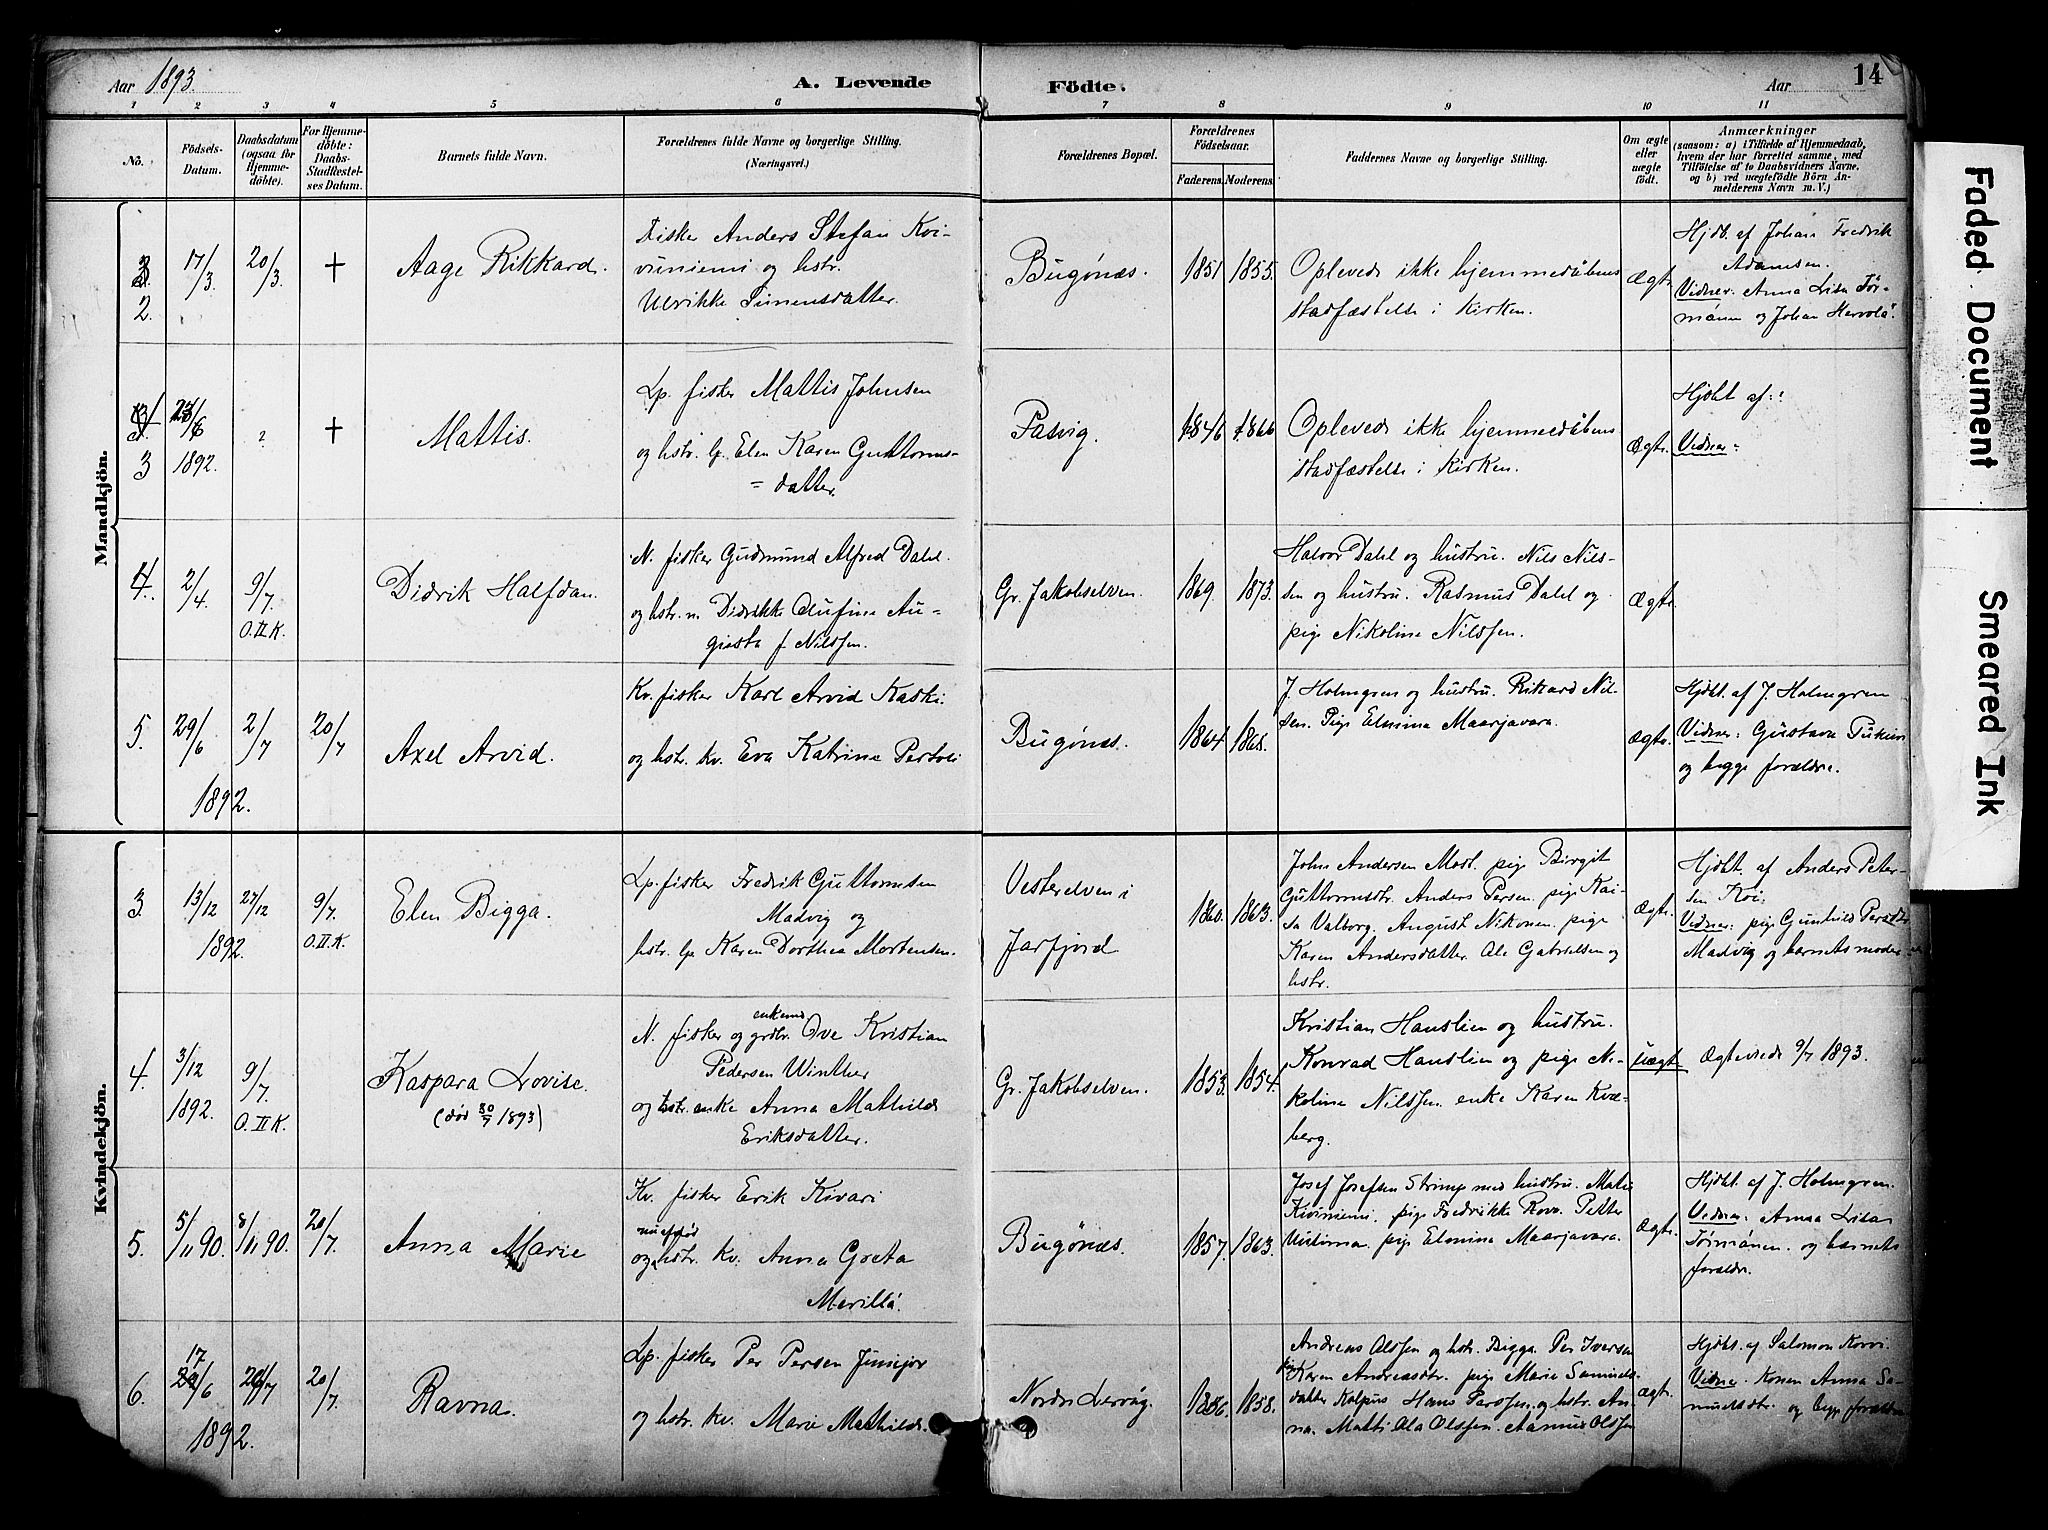 Aar 1893. A. Levende Födte. Aar 14
1 2 3 4 5 6 7 8 9 10 11
No. Födsels-Datum. Daabsdatum (ogsaa for Hjemmedöbte). For Hjemmedöbte: Daabs-Stadfæstelses Datum. Barnets fulde Navn. Forældrenes fulde Navne og borgerlige Stilling. (Næringsvei.) Forældrenes Bopæl. Forældrenes Födselsaar. Faderens. Moderens. Faddernes Navne og borgerlige Stilling. Om ægte eller uægte födt. Anmærkninger (saasom: a) i Tilfælde af Hjemmedaab, hvem der har forrettet samme, med Tilföielse af to Daabsvidners Navne, og b) ved uægtefödte Börn Anmelderens Navn m. V.)
Mandkjön.
2. 17/3 20/3 † Aage Rikkard.
Fisker Anders Stefan Kvi-
viniemi og hstr.
Ulrikke Simensdatter.
Bugønæs. 1851 1855.
Oplevede ikke hjemmedåbens
stadfæstelse i kirken.
Ægte
Hjdb. af Johan Fredrik
Adamsen.
Vidner. Anna Lisa Tør-
mänen og Johan Hervola.
3 1892. † Mattis.
Lp. fisker Mattis Johnsen
og hstr. lp. Elen Karen Guttorms-
= datter.
Pasvig. 1846 1866
Oplevede ikke hjemmedåbens
stadfæstelse i kirken.
Ægte.
Hjdbt. af:
Vidner:
4. 2/4. 9/7. O.II.K. Didrik Halfdan.
N. fisker Gudmund Alfred Dahl.
og hstr. n. Didrikke Olufine Au-
gusta f. Nilssen.
Gr. Jakobselven. 1869. 1873.
Halvor Dahl og hustru. Nils Nils-
sen og hustru. Rasmus Dahl og
pige Nikoline Nilssen.
Ægte
5. 29/6 1892. 2/7 20/7 Axel Arvid.
Kv. fisker Karl Arvid Kaski.
og hstr. kv. Eva Katrine Pertoli
Bugønæs. 1864 1868.
J. Holmgren og hustru. Rikard Nil-
sen. Pige Elmina Maarjavara.
Ægte.
Hjdbt. af J. Holmgren
Vidner: Gustava Pukuri
og begge forældre.
Kvindekjön.
3. 13/12 1892. 27/12 9/7. O.II.K. Elen Bigga.
Lp. fisker Fredrik Guttormsen
Madvig og
hstr. lp Karen Dorthea Mortensen.
Vesterelven i
Jarfjord
1860. 1863.
John Andersen Mart. pige Birgit
Guttormsdtr. Anders Persen. pige Kai-
sa Valborg. August Nikonen. pige
Karen Andersdatter. Ole Gabrielsen og
hstr.
Ægte.
Hjdbt. af Anders Peter-
sen Koi.
Vidner: pige Gunhild Persdtr
Madvig og barnets moder
4. 3/12 1892. 9/7. O.II.K. Kaspara Lovise.
(død 30/7 1893)
N. fisker og grdbr. enkemd. Ove Kristian
Pedersen Winther
og hstr. enke Anna Mathilde
Eriksdatter.
Gr. Jakobselven. 1853. 1854.
Kristian Hanslien og hustru.
Konrad Hanslien og pige Ni-
koline Nilssen. enke Karen Kvæ-
berg.
Uægte
Ægteviede 9/7 1893.
5. 5/11 90. 8/11 90. 20/7 Anna Marie
Kv. fisker Erik Kivari
og hstr. kv. Anna Greta
Merillä.
Bugønæs. 1857. 1863.
Josef Josefsen Strimp med hustru. Matis
Kiviniemi. pige Fredrikke Rova. Petter
Uutinoa. pige Elmina Maarjavara.
Ægte.
Hjdbt. af J. Holmgren.
Vidner: Anna Lisa
Törmänen. og barnets
forældre.
6. 17/6 1892. 20/7 Ravna.
Lp. fisker Per Persen Jinnijov
og hstr. kv. Marie Mathilde
Nordre Lervåg. 1856. 1858.
Andreas Olssen og hstr. Bigga. Per Iversen
pige Karen Andreasdtr. pige Marie Samuels-
datter Kalpus Hans Perssen og hstr. An-
na. Matti Ola Olssen. Aanus Olssen
Ægte
Hjdbt. af Salomon Korvi
Vidner. Konen Anna Sa-
muelsdtr. og begge forældre
Faded Document
Smeared Ink